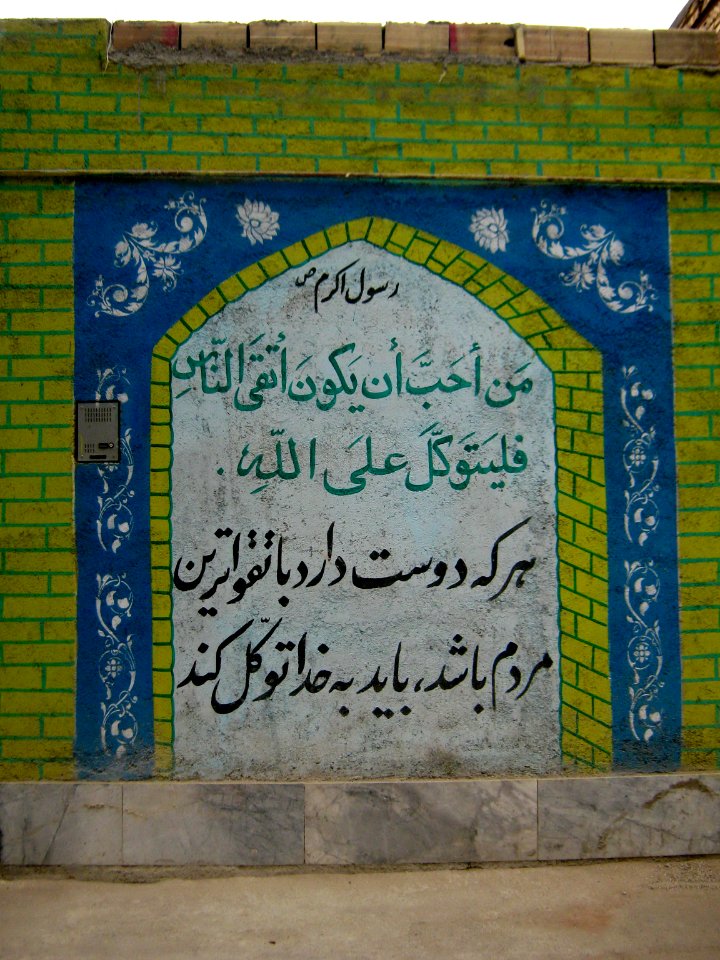 رسول اکرم ص
مَن أحَبَّ أن يَكونَ أتقَى النّاسِ
فليَتَوَكَّل عَلىَ اللّهِ .
هر که دوست دارد با تقواترین
مردم باشد، باید به خدا توکّل کند